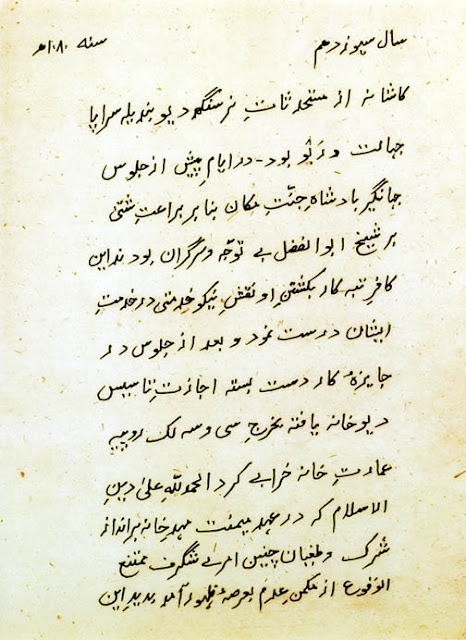 سال سیزدهم سنه ۱۰۸۰ھ
کاشانه از مستحدثاتِ نرسنگھ دیو بندیله سراپا
جہالت و دَیُو بود - در ایامِ پیش از جلوس
جہانگیر بادشاهِ جنّت مکان بنا بر براعتِ شتّی
بر شیخ ابوالفضل بے توجّه و سرگران بودند این
کافرِ تبه کار بکشتنِ او نقشِ نیکو خدمتی در خدمتِ
ایشان درست نمود و بعد از جلوس در
جایزهٔ کار دست بسته اجازتِ تاسیس
دیوخانه یافته بخرجِ سی و سه لک روپیه
عمارتِ خانه خرابے کرد الحمدللهِ علیٰ دینِ
الاسلام که در عہدِ میمنت مہدِ خانه برانداز
شرک و طغیان چنین امرے شگرفِ ممتنع
الوقوع از مکمنِ عدم بعرصهٔ ظہور آمد بدیدِ این